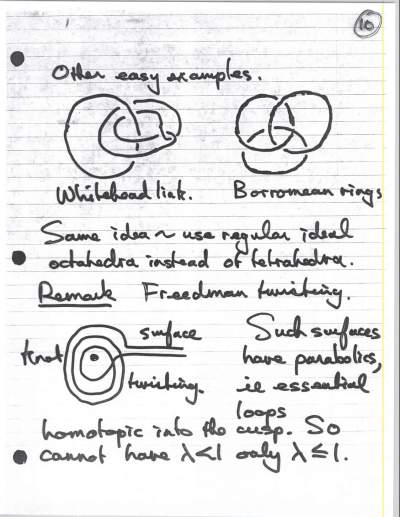 10
Other easy examples.
Whitehead link. Borromean rings
Same idea ~ use regular ideal
octahedra instead of tetrahedra.
Remark Freedman twisting.
knot surface twisting.
Such surfaces
have parabolics,
ie essential
loops
homotopic into the cusp. So
cannot have λ<1 only λ≤1.